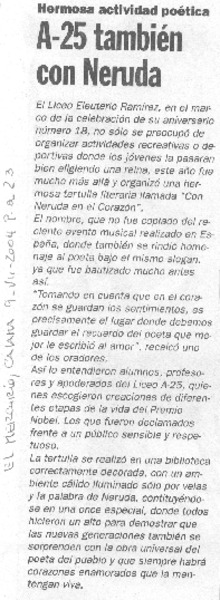 Hermosa actividad poética
A-25 también
con Neruda
El Liceo Eleuterio Ramírez, en el mar-
co de la celebración de su aniversario
número 18, no sólo se preocupó de
organizar actividades recreativas o de-
portivas donde los jóvenes la pasaran
bien eligiendo una reina, este año fue
mucho más allá y organizó una her-
mosa tertulia literaria llamada "Con
Neruda en el Corazón".
El nombre, que no fue copiado del re-
ciente evento musical realizado en Es-
paña, donde también se rindió home-
naje al poeta bajo el mismo slogan,
ya que fue bautizado mucho antes
así.
"Tomando en cuenta que en el cora-
zón se guardan los sentimientos, es
precisamente el lugar donde debemos
guardar el recuerdo del poeta que me-
jor le escribió al amor", recalcó uno
de los oradores.
Así lo entendieron alumnos, profeso-
res y apoderados del Liceo A-25, quie-
nes escogieron creaciones de diferen-
tes etapas de la vida del Premio
Nobel. Los que fueron declamados
frente a un público sensible y respe-
tuoso.
La tertulia se realizó en una biblioteca
correctamente decorada, con un am-
biente cálido iluminado sólo por velas
y la palabra de Neruda, contituyéndo-
se en una once especial, donde todos
hicieron un alto para demostrar que
las nuevas generaciones también se
sorprenden con la obra universal del
poeta del pueblo y que siempre habrá
corazones enamorados que la man-
tengan viva.
El Mercurio, 9-VII-2004 P. a 23